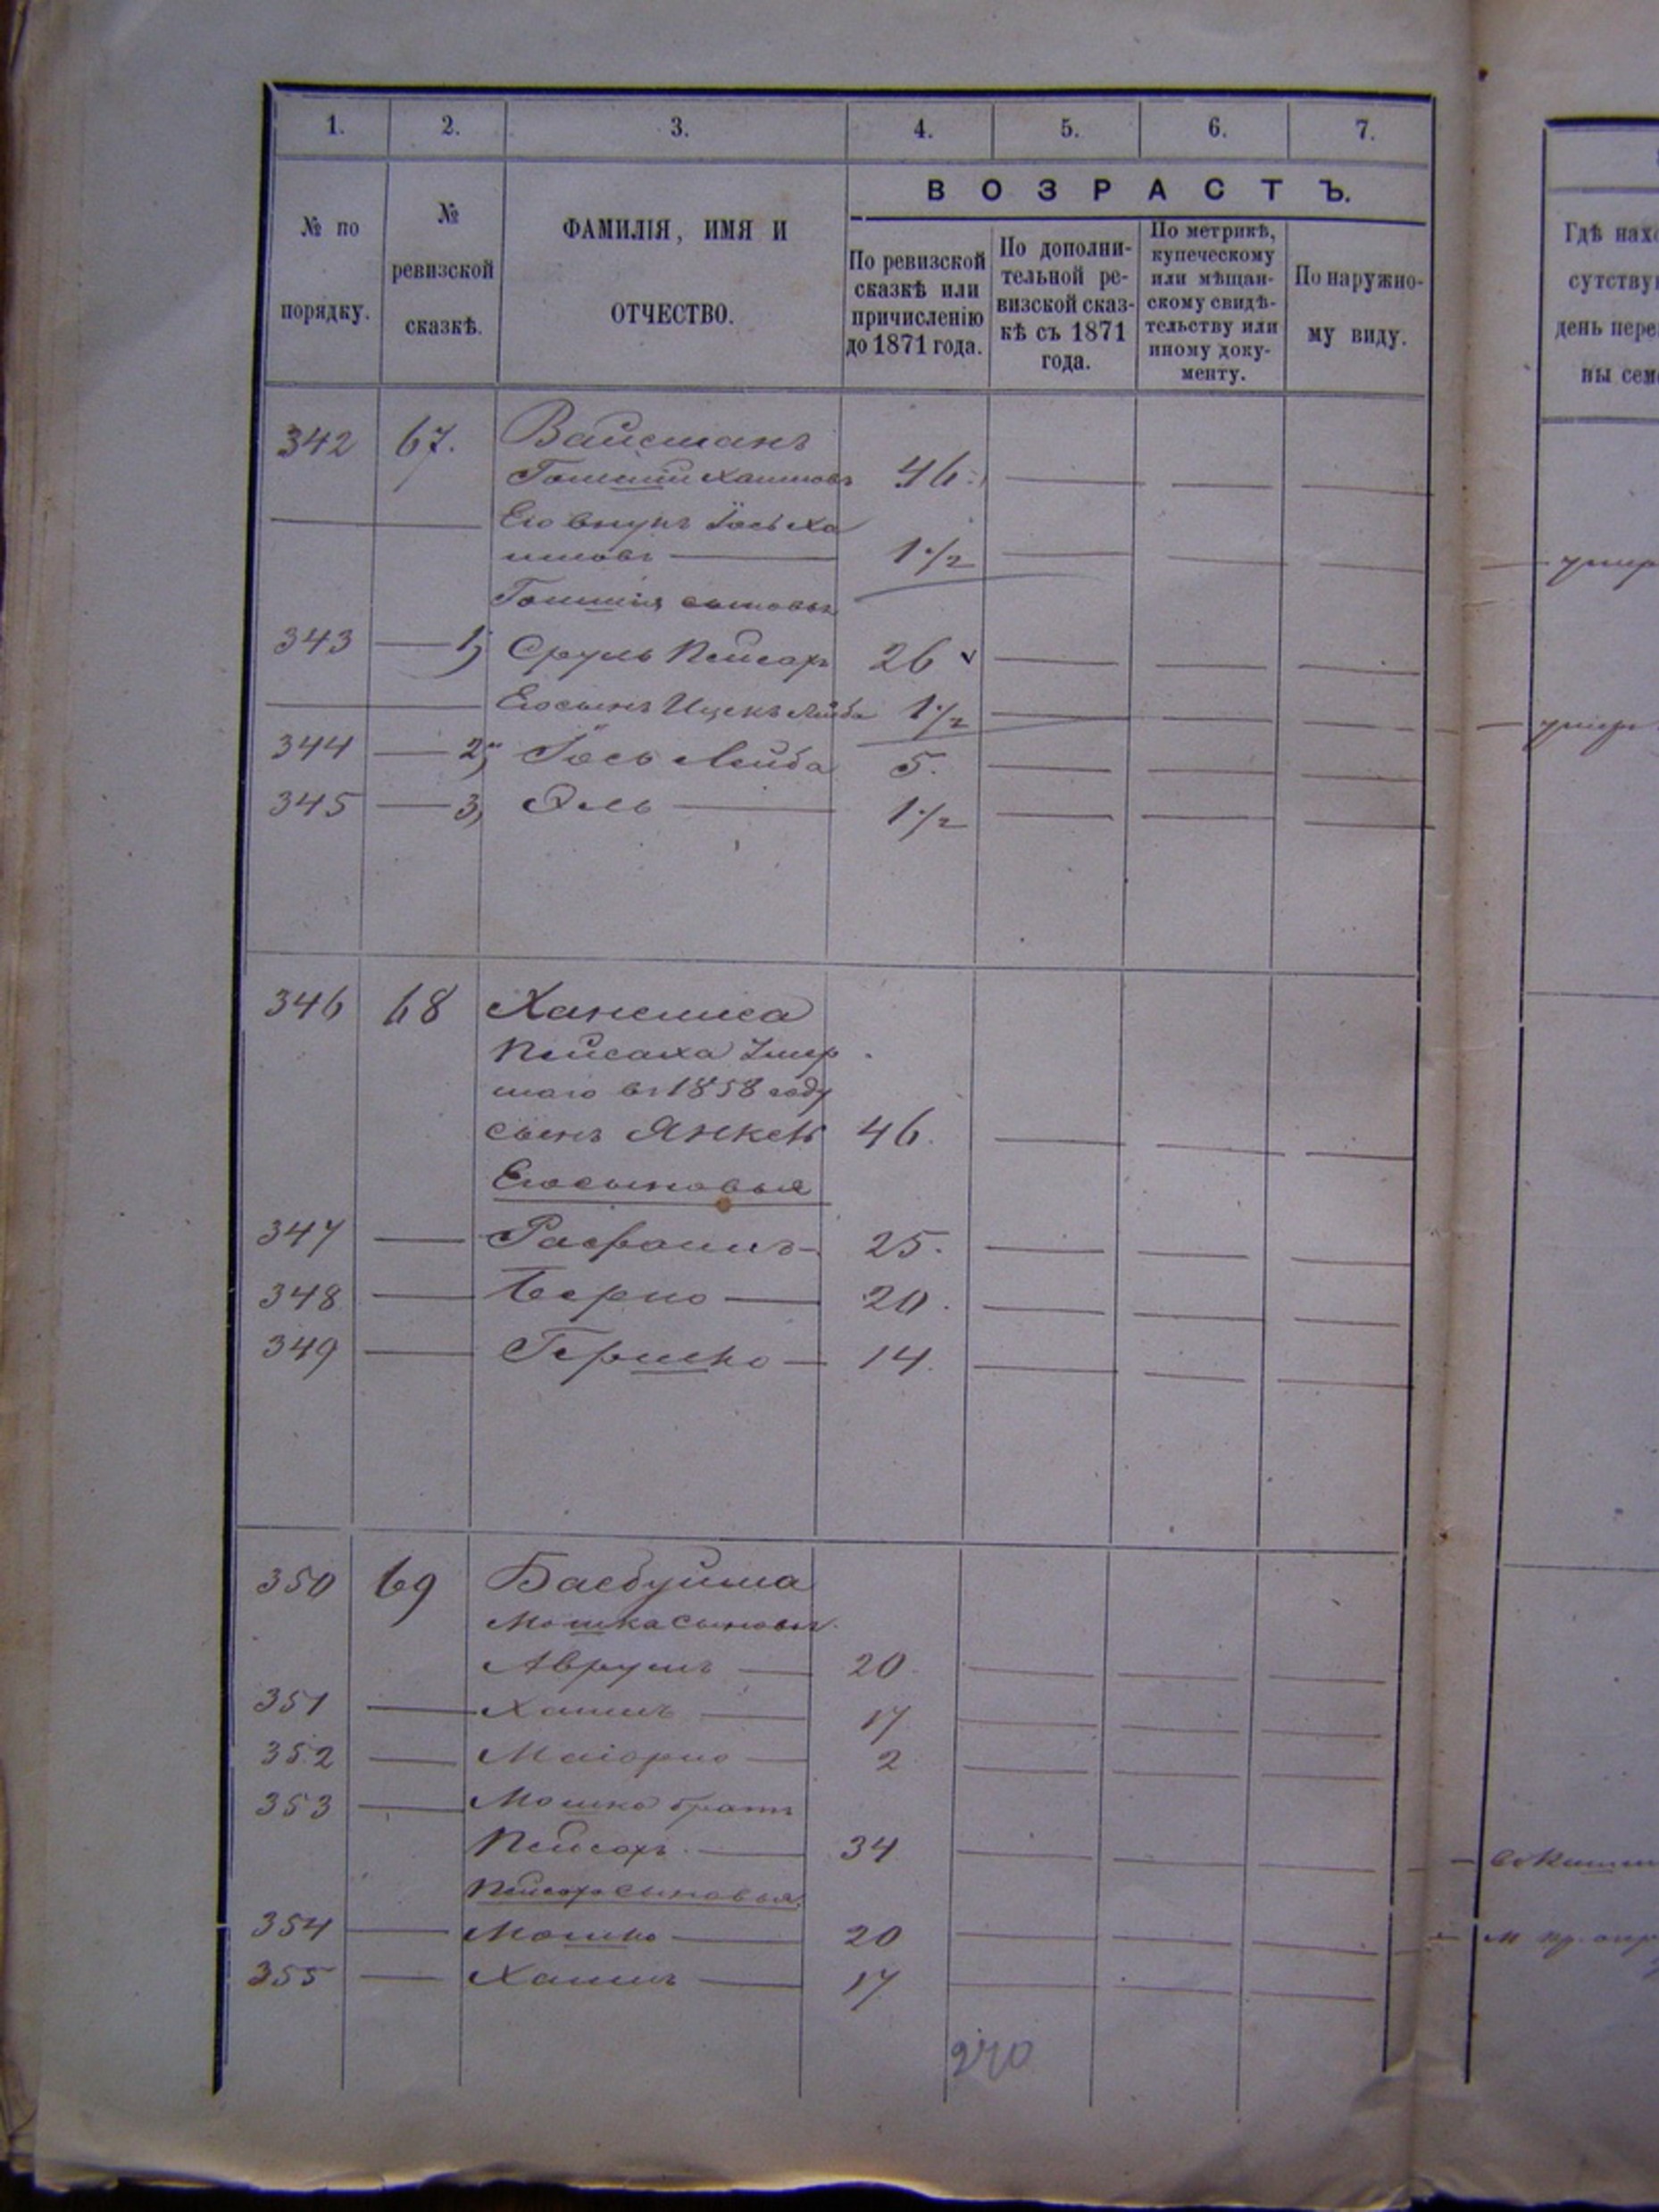 1. 2. 3. 4. 5. 6. 7.
№ по порядку.
№ ревизской сказкѣ.
ФАМИЛІЯ, ИМЯ И ОТЧЕСТВО.
ВОЗРАСТЪ.
По ревизской сказкѣ или причисленію до 1871 года.
По дополни-
тельной ре-
визской сказ-
кѣ съ 1871
года.
По метрикѣ,
купеческому
или мѣщан-
скому свидѣ-
тельству или
иному доку-
менту.
По наружно-
му виду.
Гдѣ нахо
сутству
день пере
ны сем
342 67. Вайсманъ
Хаимовъ 46
Его внукъ Іось Ха
имовъ 1 1/2
умер
сыновья
343 1) Сруль Пейсахъ 26
Его сынъ Ицекъ Лейба 1 1/2
умер
344 2) Іось Лейба 5.
345 3) Эль 1 1/2
346 68
Пейсаха Умер
шаго въ 1858 году
сынъ Янкель 46.
Его сыновья
347 Рафаилъ 25.
348 Берко 20.
349 Гершко 14.
350 69
Мошка сыновья
Аврумъ 20
351 Хаимъ 17
352 Маіорко 2
353 Мошка братъ
Пейсахъ 34
Пейсаха сыновья
354 Мошко 20
355 Хаимъ 17
270